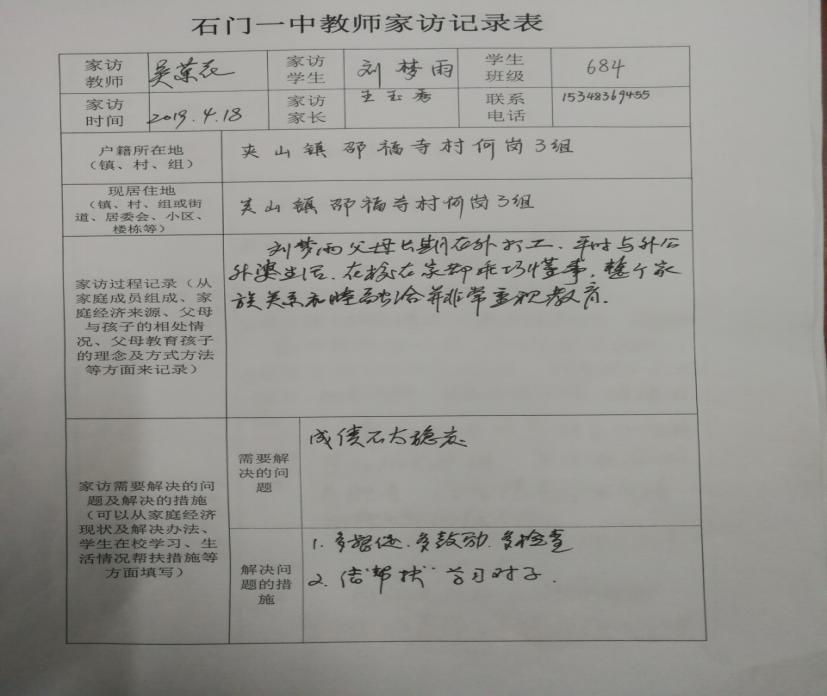 石门一中教师家访记录表
家访教师 吴菊花 家访学生 刘梦雨 学生班级 684
家访时间 2019.4.18 家访家长 王玉秀 联系电话 15348369455
户籍所在地
（镇、村、组）
夹山镇邵福寺村何岗3组
现居住地
（镇、村、组或街
道、居委会、小区、
楼栋等）
夹山镇邵福寺村何岗3组
家访过程记录（从
家庭成员组成、家
庭经济来源、父母
与孩子的相处情
况、父母教育孩子
的理念及方式方法
等方面来记录）
刘梦雨父母长期在外打工，平时与外公
外婆生活，在校在家都乖巧懂事，整个家
族关系和睦融洽并非常重视教育.
家访需要解决的问
题及解决的措施
（可以从家庭经济
现状及解决办法、
学生在校学习、生
活情况帮扶措施等
方面填写）
需要解
决的问
题
成绩不太稳定
解决问
题的措
施
1. 多督促.多鼓励.多检查
2. 结"帮扶"学习对子.